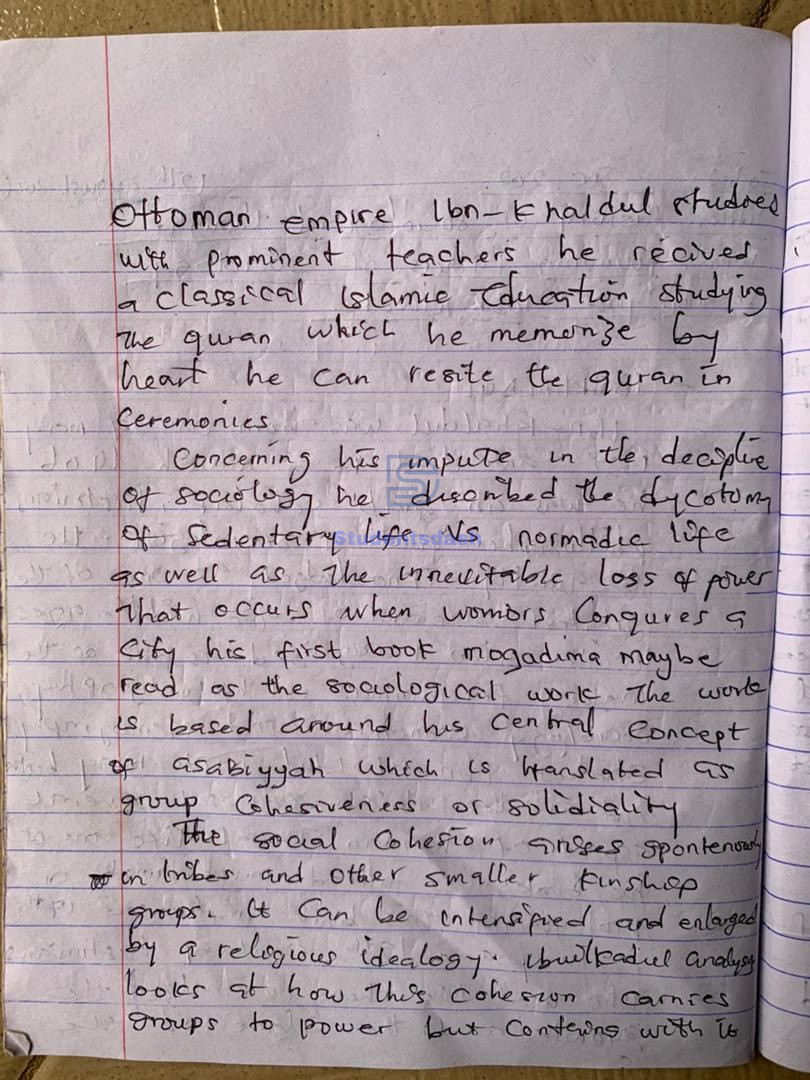 Ottoman empire Ibn-Khaldul studies
with prominent teachers he recived
a classical Islamic Education studying
the quran which he memorize by
heart he can resite the quran in
Ceremonies
Concerning his impute in the decipline
of sociology he discribed the dycotomy
of Sedentary life Vs normadic life
Studentsdash
as well as the innevitable loss of power
that occurs when worriors Conqures a
City his first book mogadima maybe
read as the sociological work The work
is based around his Central Concept
of asabiyyah which is translated as
group Cohesiveness or solidiality
The social Cohesion arises spontenously
in tribes and other smaller kinshop
groups. It Can be intensified and enlarged
by a religious idealogy. ibnulkadul analyse
looks at how this cohesion carries
groups to power but Conterns with it